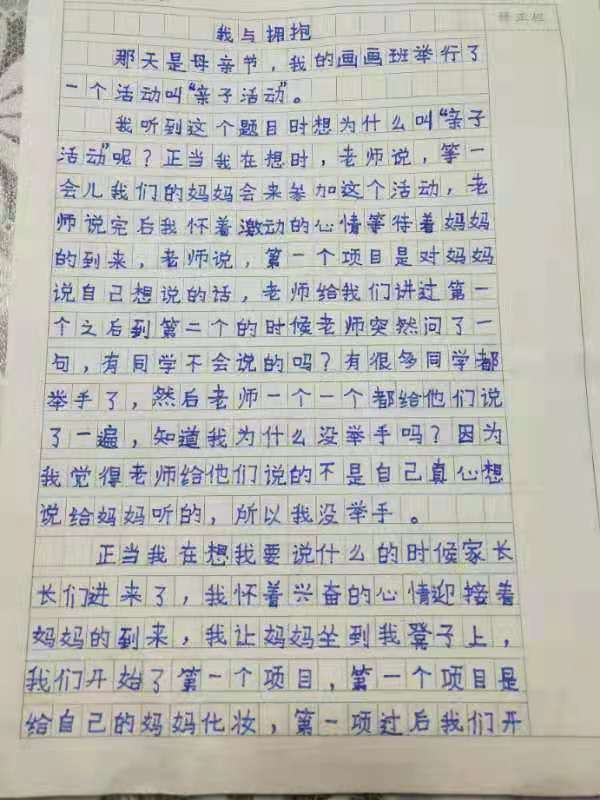 我与拥抱
那天是母亲节，我的画画班举行了
一个活动叫“亲子活动”。
我听到这个题目时想为什么叫“亲子
活动”呢？正当我在想时，老师说，等一
会儿我们的妈妈会来参加这个活动，老
师说完后我怀着激动的心情等待着妈妈
的到来，老师说，第一个项目是对妈妈
说自己想说的话，老师给我们讲过第一
个之后到第二个的时候老师突然问了一
句，有同学不会说的吗？有很多同学都
举手了，然后老师一个一个都给他们说
了一遍，知道我为什么没举手吗？因为
我觉得老师给他们说的不是自己真心想
说给妈妈听的，所以我没举手。
正当我在想我要说什么的时候家长
长们进来了，我怀着兴奋的心情迎接着
妈妈的到来，我让妈妈坐到我凳子上，
我们开始了第一个项目，第一个项目是
给自己的妈妈化妆，第一项过后我们开